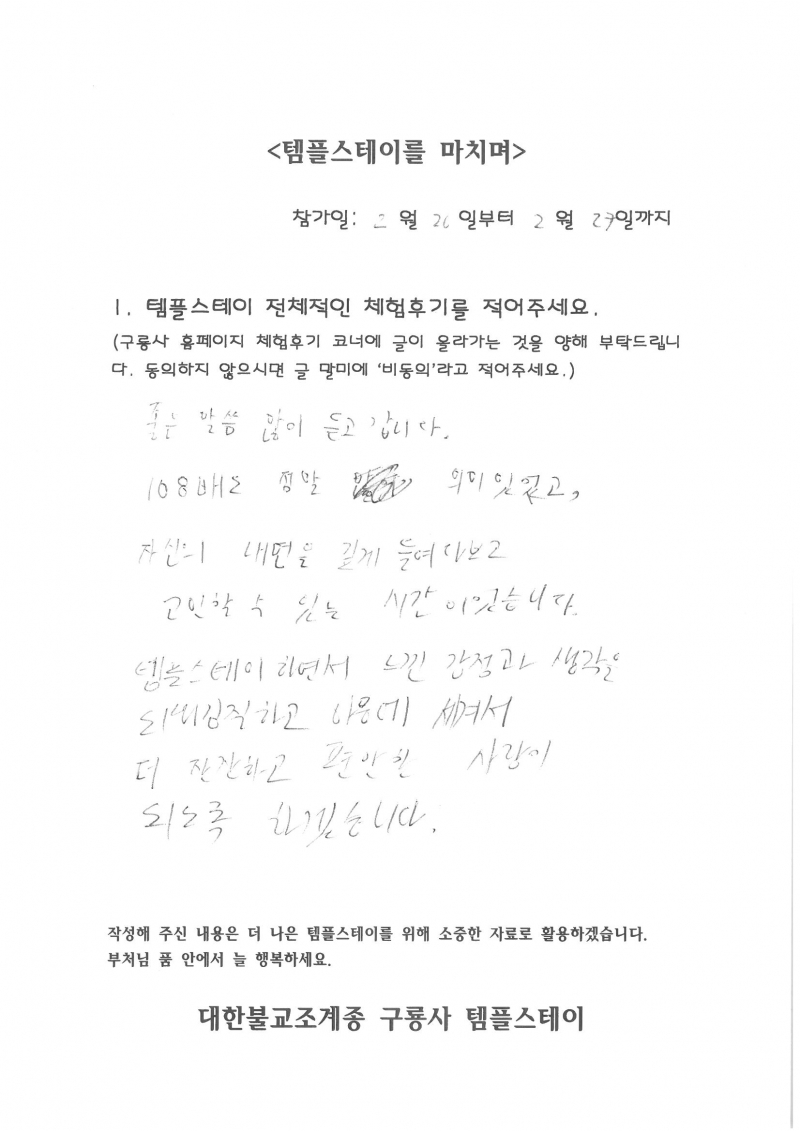 <템플스테이를 마치며>
참가일: 2 월 26 일부터 2 월 27일까지
1. 템플스테이 전체적인 체험후기를 적어주세요.
(구룡사 홈페이지 체험후기 코너에 글이 올라가는 것을 양해 부탁드립니
다. 동의하지 않으시면 글 말미에 '비동의'라고 적어주세요.)
좋은 말씀 많이 듣고 갑니다.
108배도 정말 의미있었고,
자신의 내면을 깊게 들여다보고
고민할 수 있는 시간이었습니다.
템플스테이 하면서 느낀 감정과 생각을
되새김직하고 마음에 새겨서
더 잔잔하고 편안한 사람이
되도록 하겠습니다.
작성해 주신 내용은 더 나은 템플스테이를 위해 소중한 자료로 활용하겠습니다.
부처님 품 안에서 늘 행복하세요.
대한불교조계종 구룡사 템플스테이